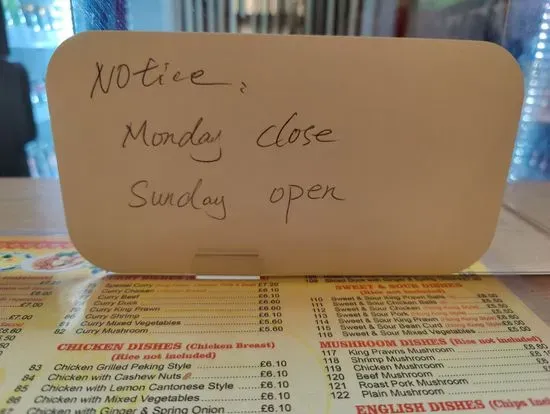 Notice:
Monday close
Sunday open
£7.00
Special Curry
£7.20
Curry Chicken
£6.10
Curry Beef
£6.10
Curry Duck
£6.10
Curry King Prawn
£6.10
86 Curry Shrimp
£6.10
81 Curry Mixed Vegetables
£5.60
82 Curry Mushroom
£5.60
CHICKEN DISHES (Chicken Breast)
(Rice not included)
83 Chicken Grilled Peking Style
£6.10
84 Chicken with Cashew Nuts
£6.10
85 Chicken with Lemon Cantonese Style
£6.10
86 Chicken with Mixed Vegetables
£6.10
Chicken with Ginger & Spring Onion
£6.10
SWEET & SOUR DISHES
110 Sweet & Sour King Prawn Balls
111 Sweet & Sour Chicken Balls
112 Sweet & Sour Duck
113 Sweet & Sour Pork
114 Sweet & Sour King Prawn
115 Sweet & Sour Bean Curd
116 Sweet & Sour Mixed Vegetables
MUSHROOM DISHES (Rice not included)
117 King Prawn Mushroom
118 Shrimp Mushroom
119 Chicken Mushroom
120 Beef Mushroom
121 Roast Pork Mushroom
122 Plain Mushroom
ENGLISH DISHES (Chips